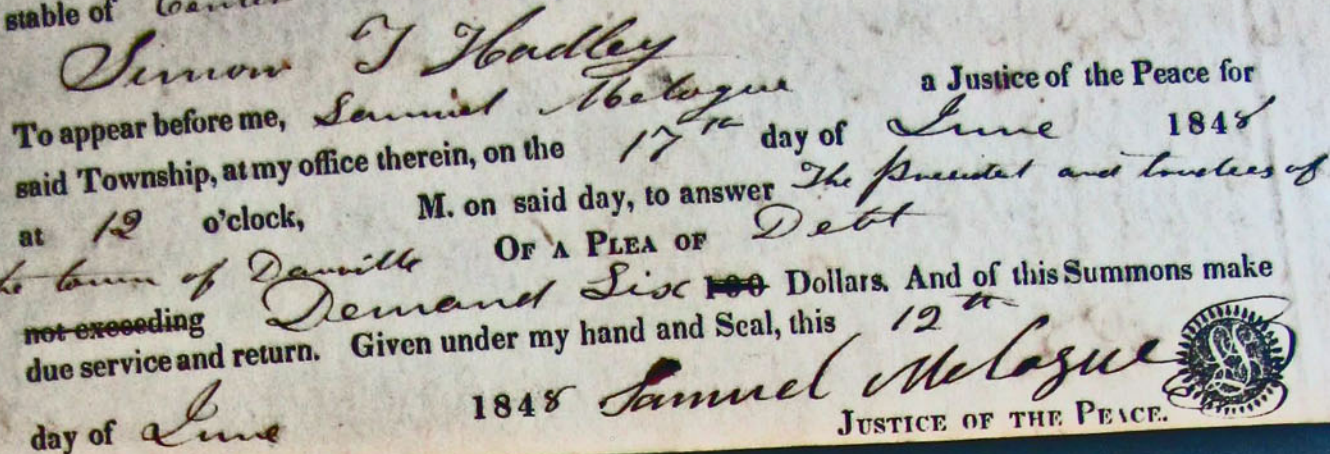 stable of Center
Simon T Hadley
To appear before me, Samuel Melogue a Justice of the Peace for
said Township, at my office therein, on the 17th day of June 1848
at 12 o'clock, M. on said day, to answer The President and trustees of
the town of Danville OF A PLEA OF Debt
not exceeding Demand Six 100 Dollars. And of this Summons make
due service and return. Given under my hand and Seal, this 12th
day of June 1848 Samuel Melogue
JUSTICE OF THE PEACE.